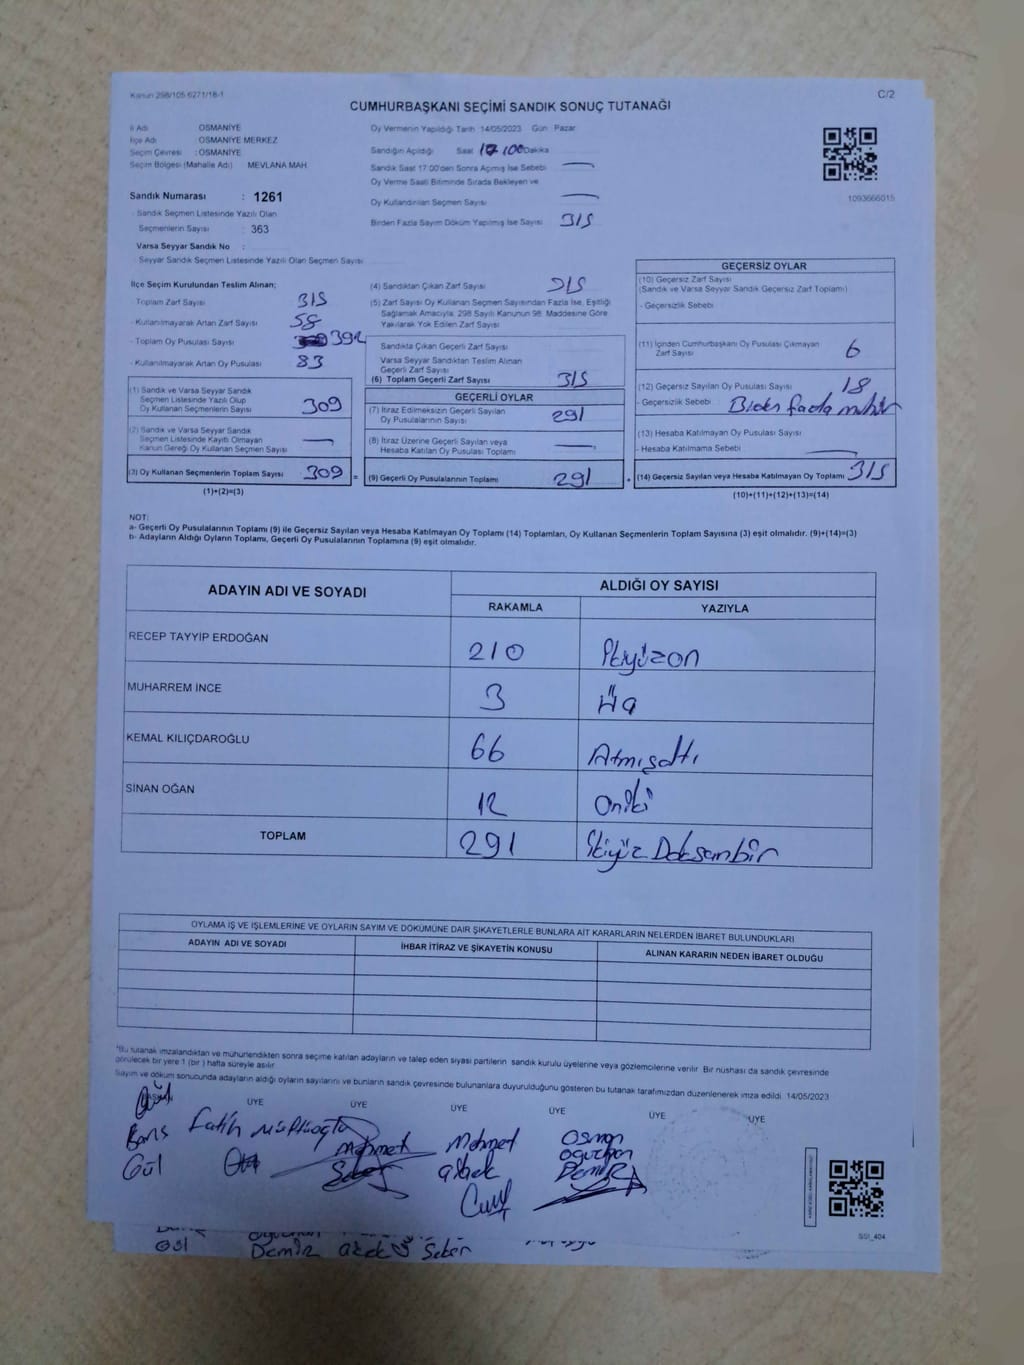 Kanun 298/105 6271/18-1
C/2
CUMHURBAŞKANI SEÇİMİ SANDIK SONUÇ TUTANAĞI
İl Adı OSMANİYE
İlçe Adı OSMANİYE MERKEZ
Seçim Çevresi : OSMANİYE
Seçim Bölgesi (Mahalle Adı) MEVLANA MAH.
Sandık Numarası : 1261
- Sandık Seçmen Listesinde Yazılı Olan
Seçmenlerin Sayısı : 363
Varsa Seyyar Sandık No :
- Seyyar Sandık Seçmen Listesinde Yazılı Olan Seçmen Sayısı
Oy Vermenin Yapıldığı Tarih 14/05/2023 Gün Pazar
Sandığın Açıldığı Saat 17 00 Dakika
Sandık Saat 17.00'den Sonra Açılmış İse Sebebi
Oy Verme Saati Bitiminde Sırada Bekleyen ve
Oy Kullandırılan Seçmen Sayısı
Birden Fazla Sayım Döküm Yapılmış İse Sayısı 315
1093666015
İlçe Seçim Kurulundan Teslim Alınan;
Toplam Zarf Sayısı 315
- Kullanılmayarak Artan Zarf Sayısı 58
- Toplam Oy Pusulası Sayısı 392
- Kullanılmayarak Artan Oy Pusulası 83
(1) Sandık ve Varsa Seyyar Sandık
Seçmen Listesinde Yazılı Olup
Oy Kullanan Seçmenlerin Sayısı 309
(2) Sandık ve Varsa Seyyar Sandık
Seçmen Listesinde Kayıtlı Olmayan
Kanun Gereği Oy Kullanan Seçmen Sayısı
(3) Oy Kullanan Seçmenlerin Toplam Sayısı 309
(1)+(2)=(3)
(4) Sandıktan Çıkan Zarf Sayısı 315
(5) Zarf Sayısı Oy Kullanan Seçmen Sayısından Fazla İse, Eşitliği
Sağlamak Amacıyla, 298 Sayılı Kanunun 98. Maddesine Göre
Yakılarak Yok Edilen Zarf Sayısı
Sandıkta Çıkan Geçerli Zarf Sayısı
Varsa Seyyar Sandıktan Teslim Alınan
Geçerli Zarf Sayısı
(6) Toplam Geçerli Zarf Sayısı 315
GEÇERLİ OYLAR
(7) İtiraz Edilmeksizin Geçerli Sayılan
Oy Pusulalarının Sayısı 291
(8) İtiraz Üzerine Geçerli Sayılan veya
Hesaba Katılan Oy Pusulası Toplamı
(9) Geçerli Oy Pusulalarının Toplamı 291
GEÇERSİZ OYLAR
(10) Geçersiz Zarf Sayısı
(Sandık ve Varsa Seyyar Sandık Geçersiz Zarf Toplamı)
- Geçersizlik Sebebi
(11) İçinden Cumhurbaşkanı Oy Pusulası Çıkmayan
Zarf Sayısı 6
(12) Geçersiz Sayılan Oy Pusulası Sayısı 18
- Geçersizlik Sebebi
(13) Hesaba Katılmayan Oy Pusulası Sayısı
- Hesaba Katılmama Sebebi
(14) Geçersiz Sayılan veya Hesaba Katılmayan Oy Toplamı 315
(10)+(11)+(12)+(13)=(14)
NOT:
a- Geçerli Oy Pusulalarının Toplamı (9) ile Geçersiz Sayılan veya Hesaba Katılmayan Oy Toplamı (14) Toplamları, Oy Kullanan Seçmenlerin Toplam Sayısına (3) eşit olmalıdır. (9)+(14)=(3)
b- Adayların Aldığı Oyların Toplamı, Geçerli Oy Pusulalarının Toplamına (9) eşit olmalıdır.
ADAYIN ADI VE SOYADI ALDIĞI OY SAYISI
RAKAMLA YAZIYLA
RECEP TAYYİP ERDOĞAN 210 İkiyüzon
MUHARREM İNCE 3 Üç
KEMAL KILIÇDAROĞLU 66 Atmışaltı
SİNAN OĞAN 12 Oniki
TOPLAM 291 İkiyüz Doksanbir
OYLAMA İŞ VE İŞLEMLERİNE VE OYLARIN SAYIM VE DÖKÜMÜNE DAİR ŞİKAYETLERLE BUNLARA AİT KARARLARIN NELERDEN İBARET BULUNDUKLARI
ADAYIN ADI VE SOYADI İHBAR İTİRAZ VE ŞİKAYETİN KONUSU ALINAN KARARIN NEDEN İBARET OLDUĞU
*Bu tutanak imzalandıktan ve mühürlendikten sonra seçime katılan adayların ve talep eden siyasi partilerin sandık kurulu üyelerine veya gözlemcilerine verilir. Bir nüshası da sandık çevresinde
görülecek bir yere 1 (bir) hafta süreyle asılır.
Sayım ve döküm sonucunda adayların aldığı oyların sayılarını ve bunların sandık çevresinde bulunanlara duyurulduğunu gösteren bu tutanak tarafımızdan düzenlenerek imza edildi. 14/05/2023
ÜYE ÜYE ÜYE ÜYE ÜYE ÜYE
Barış Fatih Mehmet Mehmet Osman
Gül Oğuzhan
Demir
SSI_404
Gül Demir Şeker